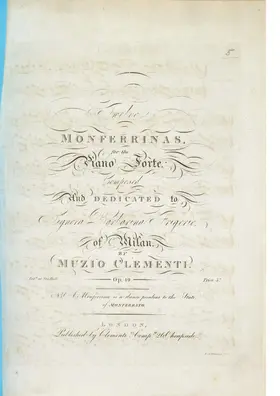 Twelve
MONFERRINAS,
for the
Piano Forte,
Composed
And DEDICATED to
Signora Barbarina Frigerio
of Milan,
BY
MUZIO CLEMENTI.
Op. 49
Price 5/
NB. A Monferrina is a dance peculiar to the State
of MONFERRATO.
LONDON,
Published by Clementi & Compy. 26 Cheapside.